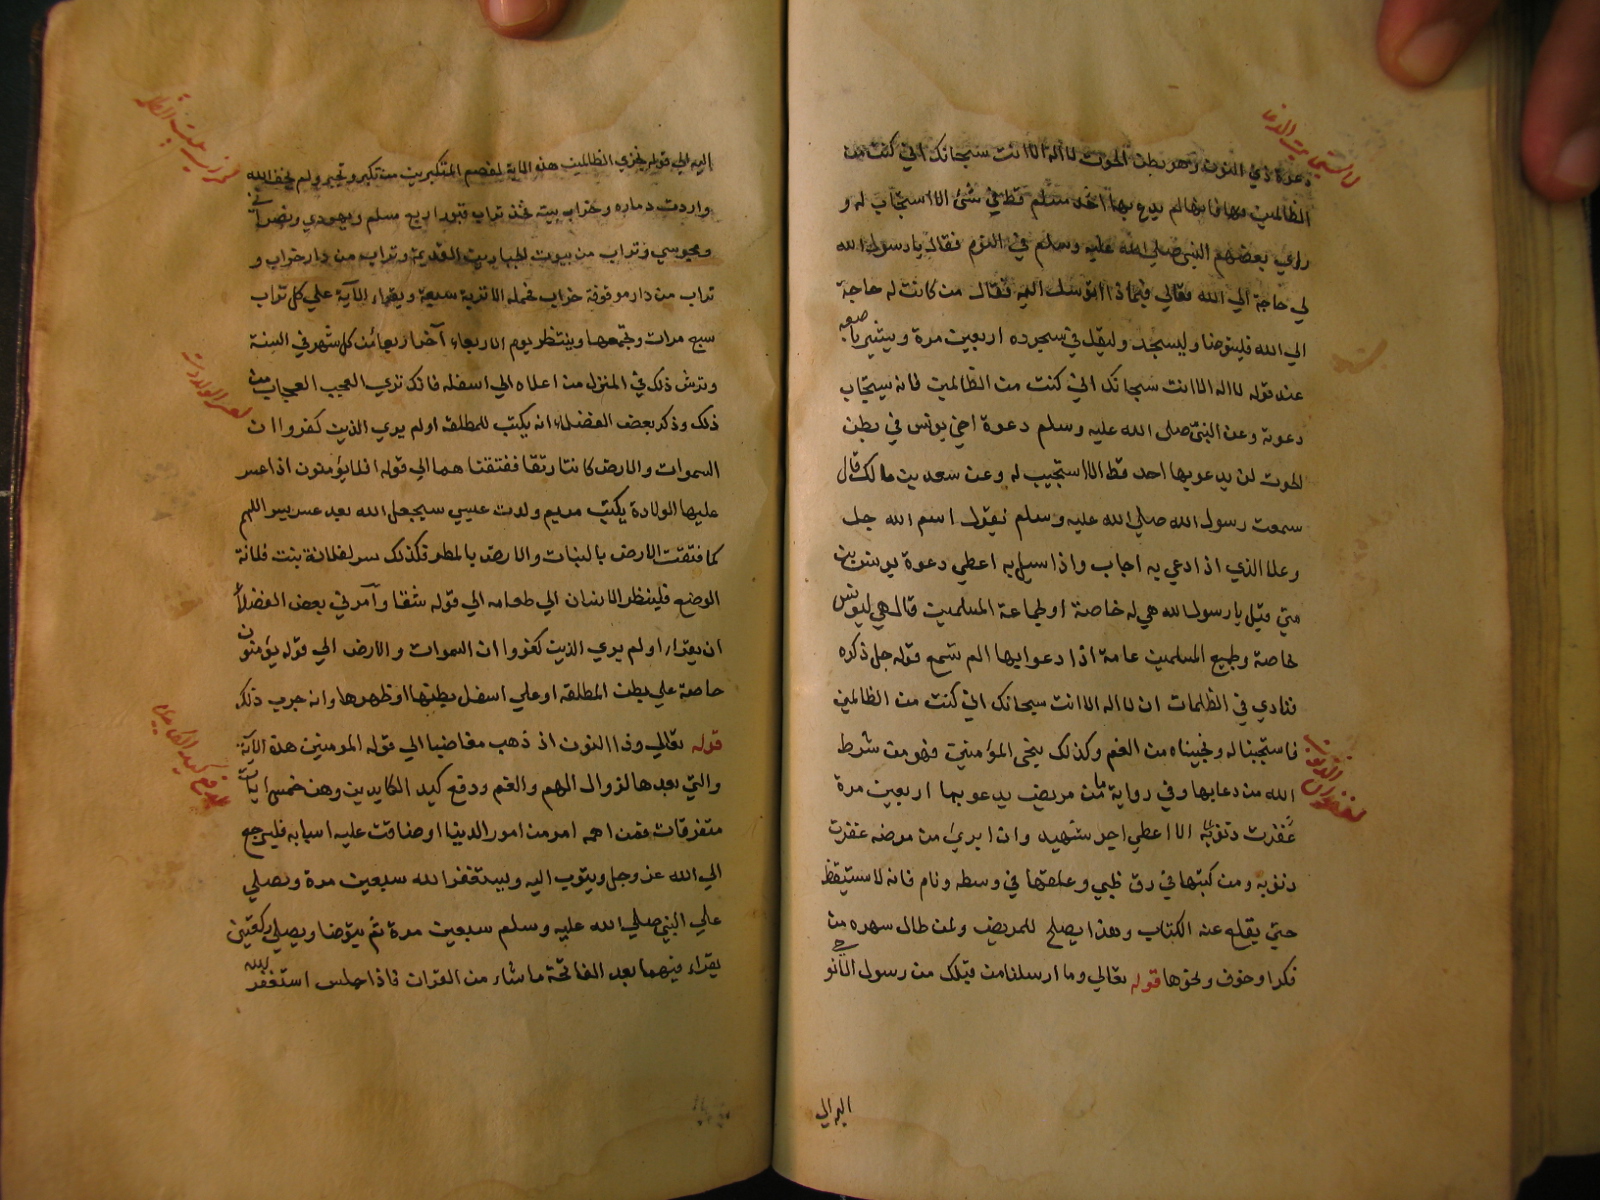 دعوة ذي النون وهو بطن الحوت لا اله الا انت سبحانك اني كنت من
الظالمين فانها لم يدع بها احد مسلم قط في شئ الا استجاب له و
راي بعضهم النبي صلي الله عليه وسلم في النوم فقال يا رسول الله
لي حاجة الي الله تعالي فبماذا اتوسل اليه فقال من كانت له حاجة
الي الله فليتوضا وليسجد وليقل في سجوده اربعين مرة ويشير باصبعه
عند قوله لا اله الا انت سبحانك اني كنت من الظالمين فانه سيجاب
دعوته وعن النبي صلي الله عليه وسلم دعوة اخي يونس في بطن
الحوت لن يدعو بها احد قط الا استجيب له وعن سعد بن مالك قال
سمعت رسول الله صلي الله عليه وسلم يقول اسم الله جل
وعلا الذي اذا دعي به اجاب واذا سيل به اعطي دعوة يونس بن
متي قيل يا رسول الله هي له خاصة او لجماعة المسلمين قال هي ليونس
خاصة ولجميع المسلمين عامة اذا دعوا بها الم تسمع قوله جل ذكره
فنادي في الظلمات ان لا اله الا انت سبحانك اني كنت من الظالمين
فاستجبنا له ونجيناه من الغم وكذلك ينجي المؤمنين فهو من شرط
الله من دعا بها وفي رواية ما من مريض يدعو بها اربعين مرة
غفرت ذنوبه الا اعطي اجر شهيد وان ابرئ من مرضه غفرت
ذنوبه ومن كتبها في رق ظبي وعلقها في وسطه ونام فانه لا يستيقظ
حتي يقلع عنه الكتاب وهذا يصلح للمريض ولمن طال سهره من
فكر او خوف ونحوها قوله تعالي وما ارسلنا من قبلك من رسول الا نو
اليه الي
اليه الي قوله نجزي الظالمين هذه الاية لقصم المتكبرين من تكبر وتجبر ولم يخف الله
واردت دماره وخراب بيته فخذ تراب قبور اربع مسلم ويهودي ونصراني
ومجوسي وتراب من بيوت الجبارين القديمة وتراب من دار خراب و
تراب من دار موقوفة خراب فجملة الاتربة سبعة ويقراء الاية علي كل تراب
سبع مرات وتجمعها وينتظر يوم الاربعاء آخر اربعاء من كل شهر في السنة
وترش ذلك في المنزل من اعلاه الي اسفله فانك تري العجب العجاب من
ذلك وذكر بعض الفضلاء انه يكتب للمطلقة اولم يري الذين كفروا ان
السموات والارض كانتا رتقا ففتقنا هما الي قوله افلا يؤمنون اذا عسر
عليها الولادة يكتب مريم ولدت عيسي سيجعل الله بعد عسر يسر اللهم
كما فتقت الارض بالنبات والارض بالمطر فكذلك سر لفلانة بنت فلانة
الوضع فلينظر الانسان الي طعامه الي قوله شقا وآمرني بعض الفضلاء
ان يقراء اولم يري الذين كفروا ان السموات والارض الي قوله يؤمنون
خاصة علي بطن المطلقة او علي اسفل بطنها او ظهرها وانه جرب ذلك
قوله تعالي وذا النون اذ ذهب مغاضبا الي قوله المومنين هذه الآية
والتي بعدها لزوال الهم والغم ودفع كيد الكايدين وهن خمس ايات
متفرقات فمن اهمه امر من امور الدنيا او ضاقت عليه اسبابه فليرجع
الي الله عز وجل ويتوب اليه ويستغفر الله سبعين مرة ويصلي
علي النبي صلي الله عليه وسلم سبعين مرة ثم يتوضا ويصلي ركعتين
يقراء فيهما بعد الفاتحة ما شاء من القران فاذا جلس استغفر لله